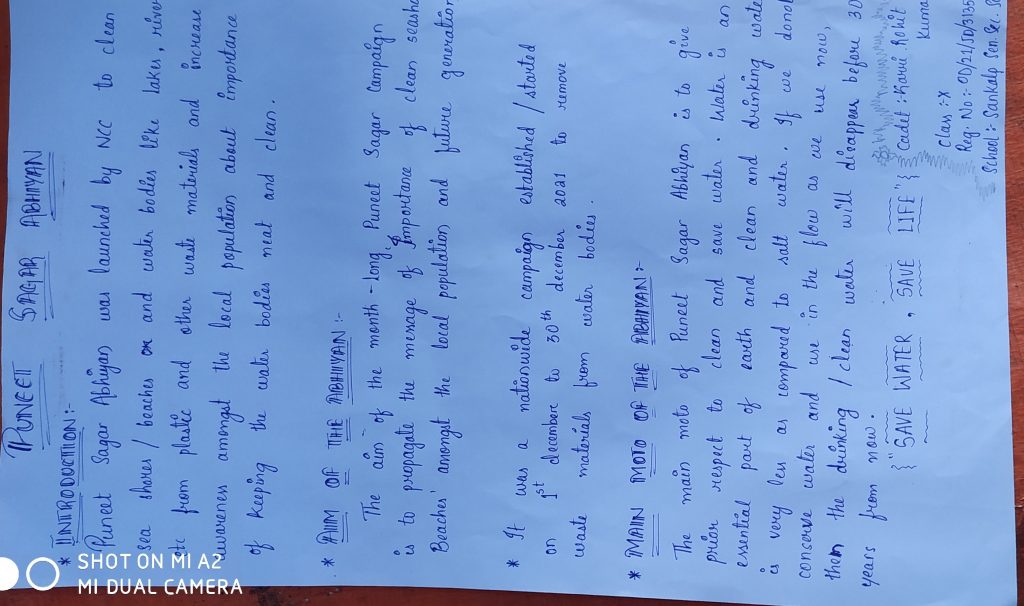 PUNEET SAGAR ABHIYAN
* INTRODUCTION:-
Puneet Sagar Abhiyan was launched by NCC to clean
sea shores / beaches and water bodies like lakes, river
etc from plastic and other waste materials and increase
awareness amongst the local population about importance
of keeping the water bodies neat and clean.
* AIM OF THE ABHIYAN:-
The aim of the month-long Puneet Sagar Campaign
is to propagate the message of Importance of clean seasho
Beaches' amongst the local population and future generation
* It was a nationwide campaign established / started
on 1st decembere to 30th december 2021 to remove
waste materials from water bodies.
* MAIN MOTO OF THE ABHIYAN:-
The main moto of Puneet Sagar Abhiyan is to give
prior respect to clean and save water. Water is an
essential part of earth and clean and drinking wate
is very less as compared to salt water. If we donot
conserve water and use in the flow as we use now,
then the drinking / clean water will disappear before 30
years from now.
{"SAVE WATER, SAVE LIFE"}
Cadet: Karri Rohit
Kuma
Class: X
Reg. No:- OD/21/SD/3135
School:- Sankalp Sen. Sec. S
SHOT ON MI A2
MI DUAL CAMERA